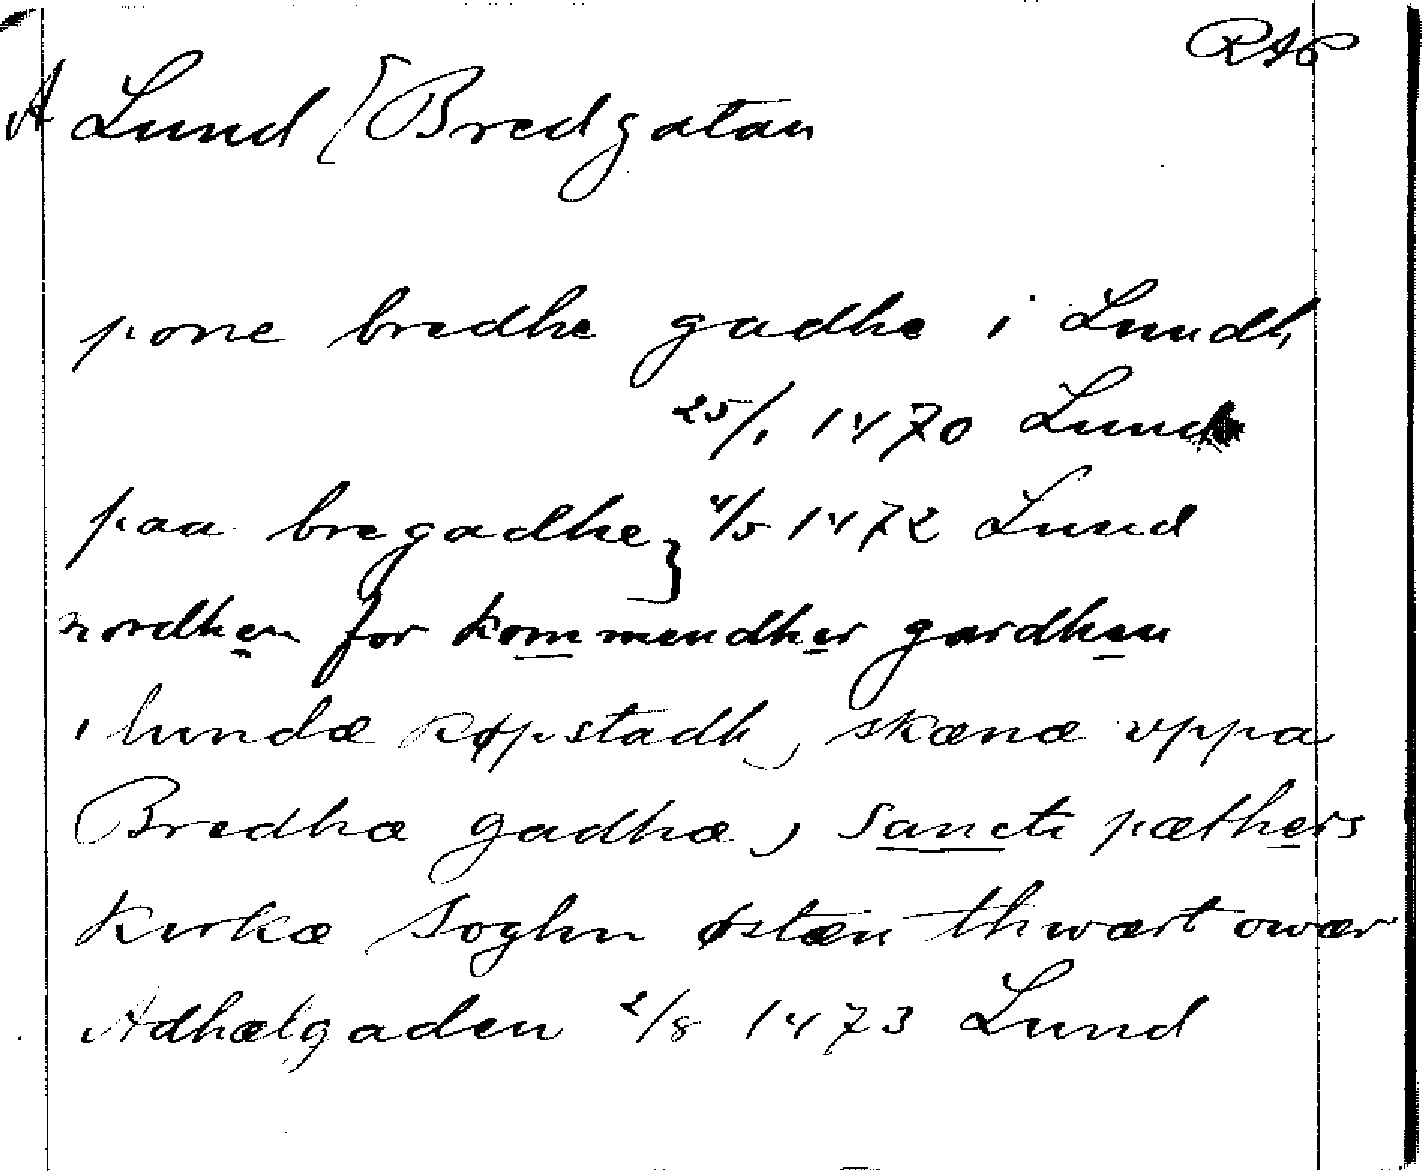 RAP
A Lund [Bredgatan
pone bredhe gadhe i Lundh
25/1 1470 Lund
paa bregadhe 4/5 1472 Lund
nordhen for kommendher gardhen
i lundæ køpstadh, skænæ vppa
Bredhæ gadhæ, Sancti pæthers
kirkæ Soghn østæn thwært owær
Adhælgaden 2/8 1473 Lund